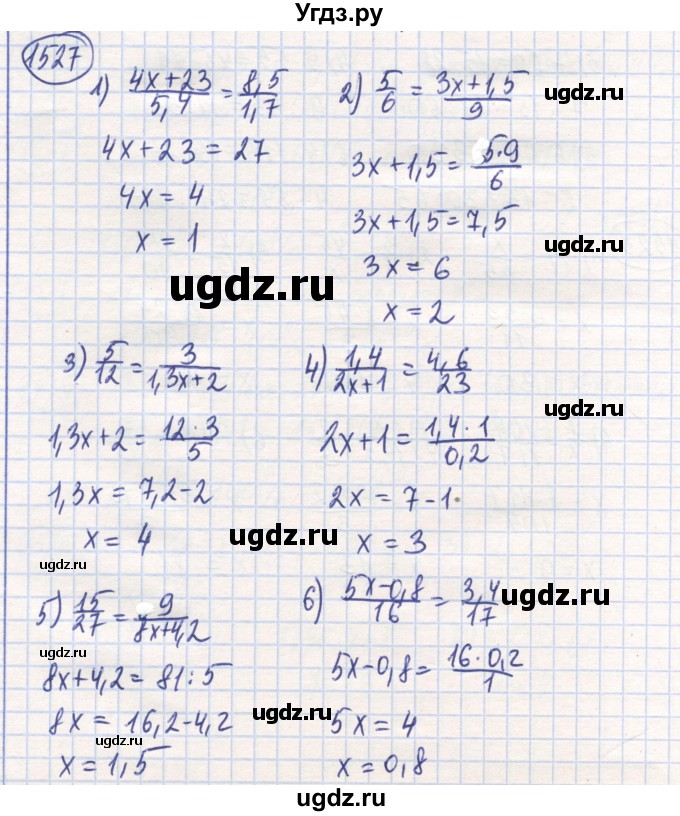 Угдз.ру
1527
1) (4x+23)/5,4 = 8,5/1,7
4x+23 = 27
4x = 4
x = 1
2) 5/6 = (3x+1,5)/9
3x+1,5 = (5·9)/6
3x+1,5 = 7,5
3x = 6
x = 2
ugdz.ru
ugdz.ru
ugdz.ru
3) 5/12 = 3/(1,3x+2)
1,3x+2 = (12·3)/5
1,3x = 7,2-2
x = 4
4) 1,4/(2x+1) = 4,6/23
2x+1 = (1,4·1)/0,2
2x = 7-1
x = 3
ugdz.ru
ugdz.ru
ugdz.ru
5) 15/27 = 9/(8x+4,2)
8x+4,2 = 81:5
8x = 16,2-4,2
x = 1,5
6) (5x-0,8)/16 = 3,4/17
5x-0,8 = (16·0,2)/1
5x = 4
x = 0,8
ugdz.ru
ugdz.ru
ugdz.ru
ugdz.ru
ugdz.ru